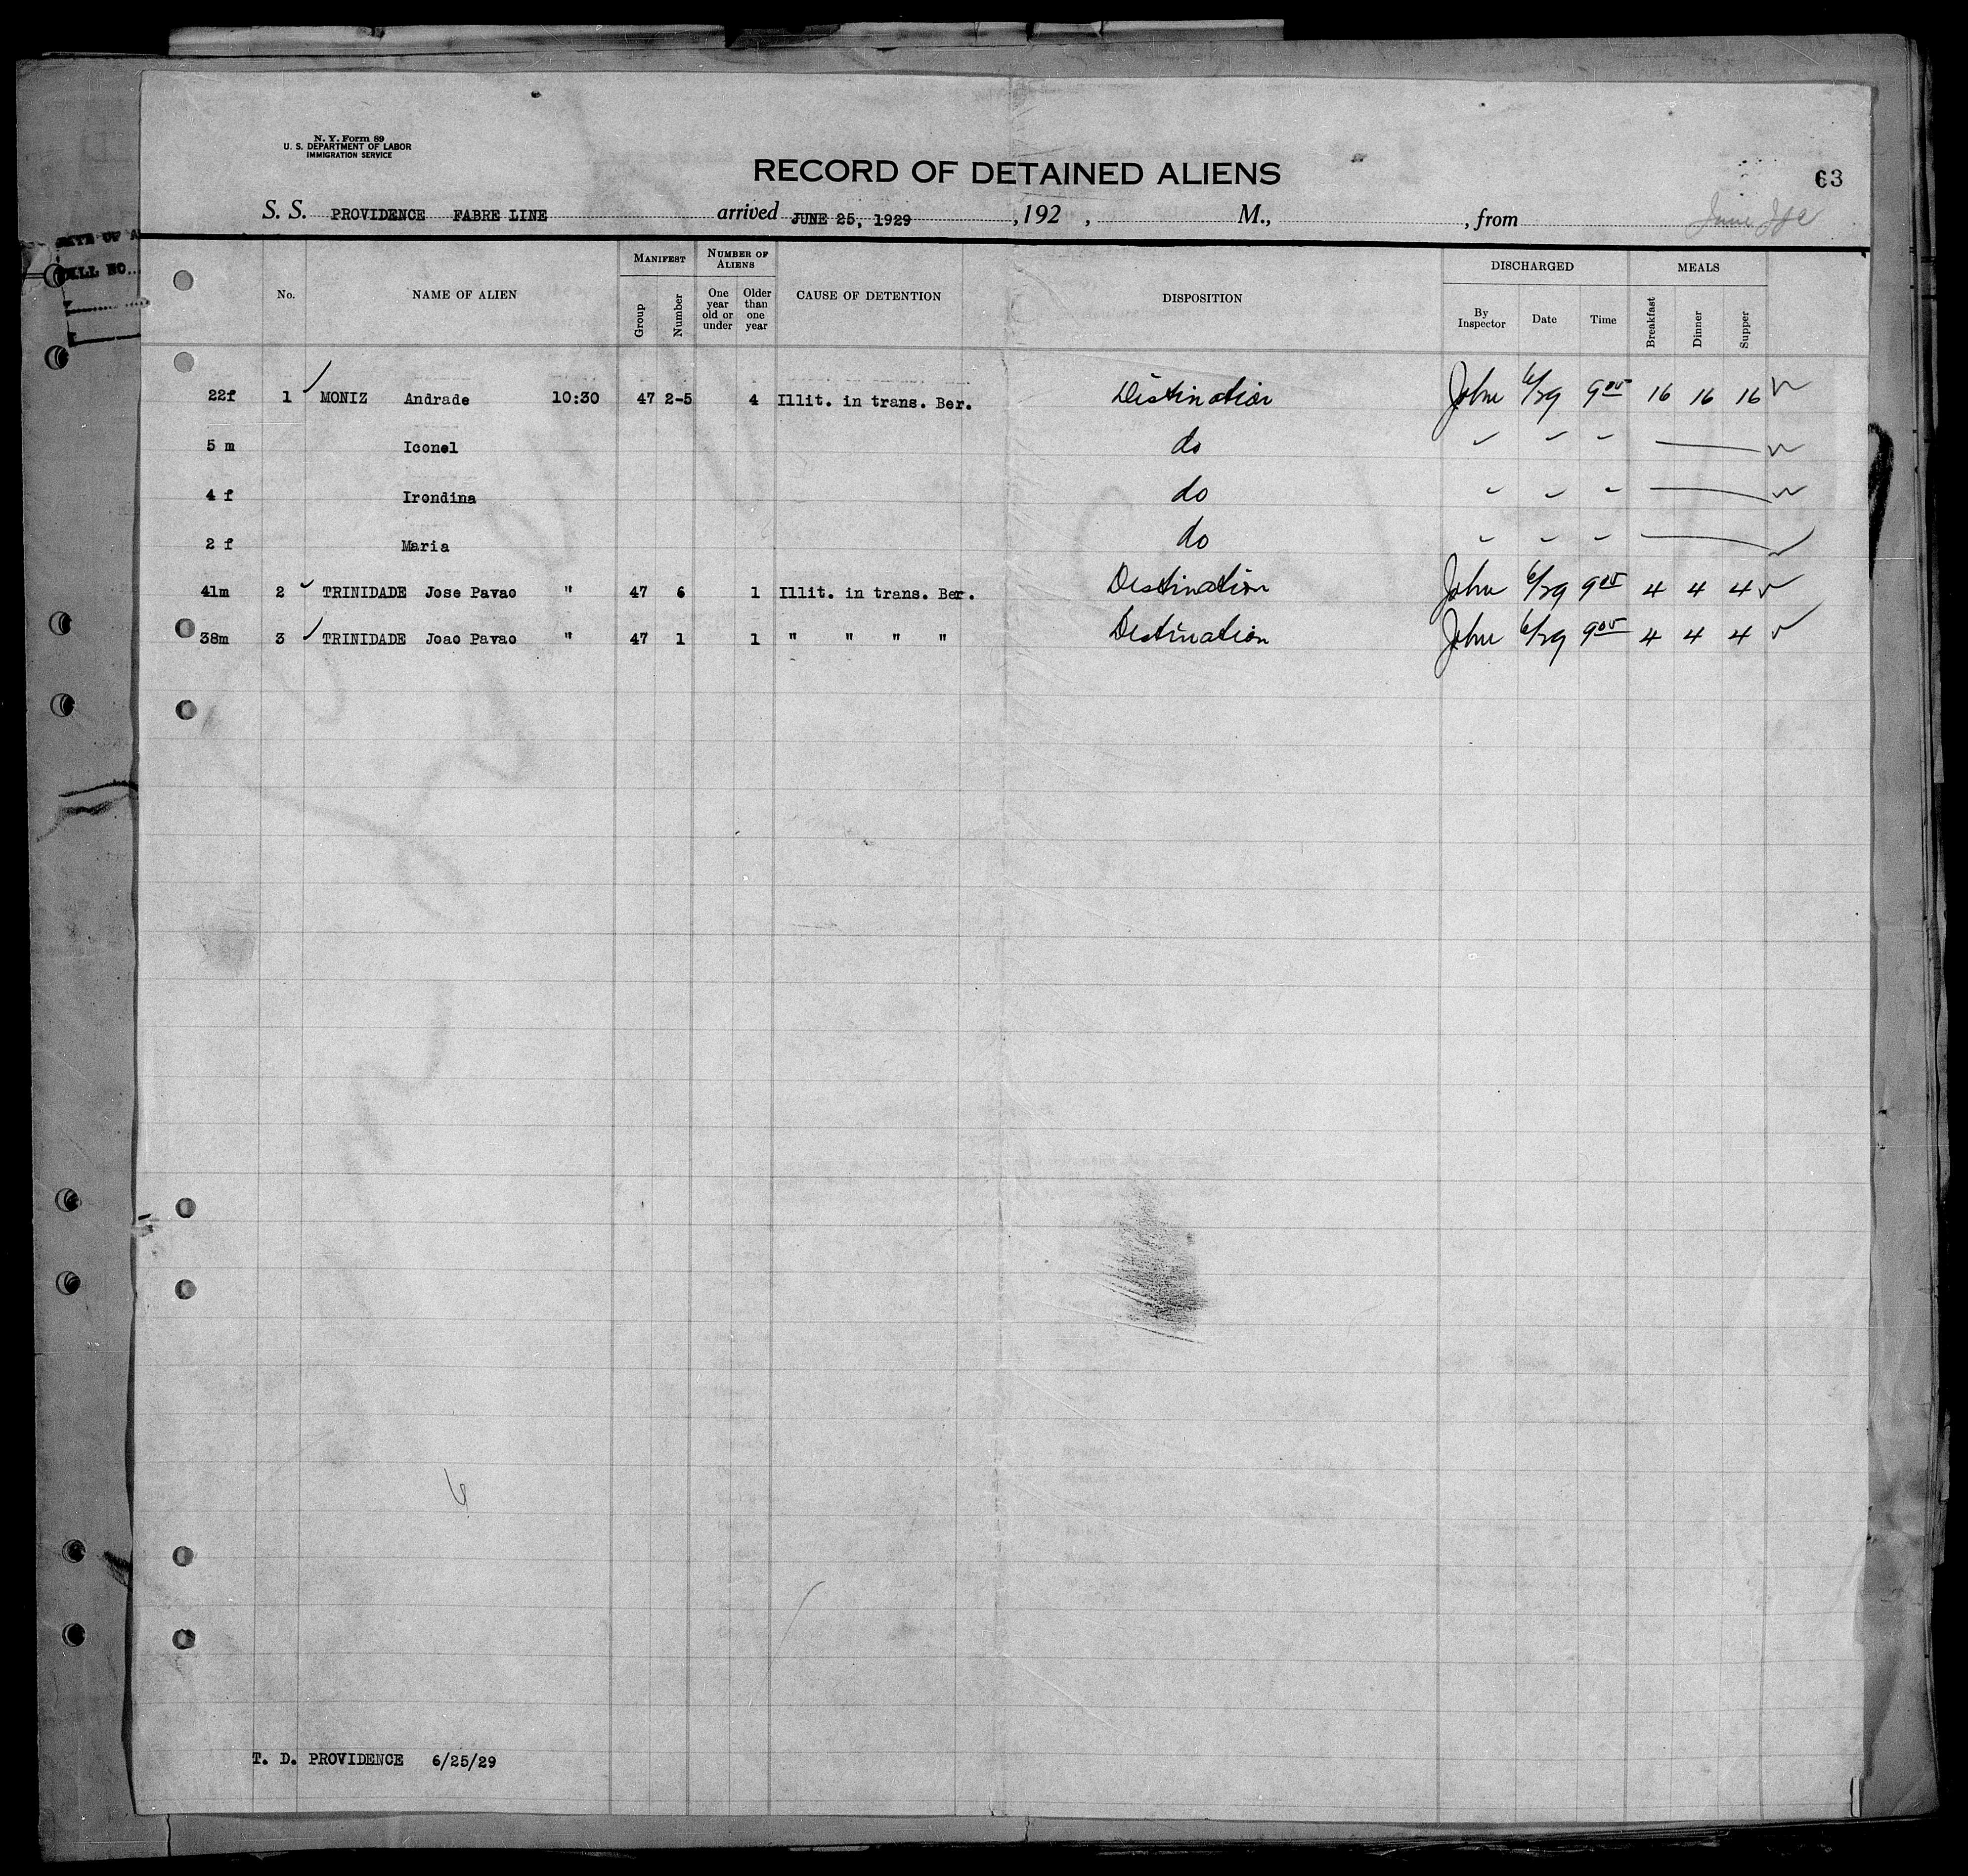 N. Y. Form 89
U. S. DEPARTMENT OF LABOR
IMMIGRATION SERVICE
RECORD OF DETAINED ALIENS
63
S. S. PROVIDENCE FABRE LINE arrived JUNE 25, 1929 , 192 , M., , from
BILL NO.
No. NAME OF ALIEN MANIFEST Group Number NUMBER OF ALIENS One year old or under Older than one year CAUSE OF DETENTION DISPOSITION DISCHARGED By Inspector Date Time MEALS Breakfast Dinner Supper
22f 1 MONIZ Andrade 10:30 47 2-5 4 Illit. in trans. Ber. Destination John 6/29 9 05 16 16 16
5 m Iconel do
4 f Irondina do
2 f Maria do
41m 2 TRINIDADE Jose Pavao " 47 6 1 Illit. in trans. Ber. Destination John 6/29 9 05 4 4 4
38m 3 TRINIDADE Joao Pavao " 47 1 1 " " " " Destination John 6/29 9 05 4 4 4
T. D. PROVIDENCE 6/25/29